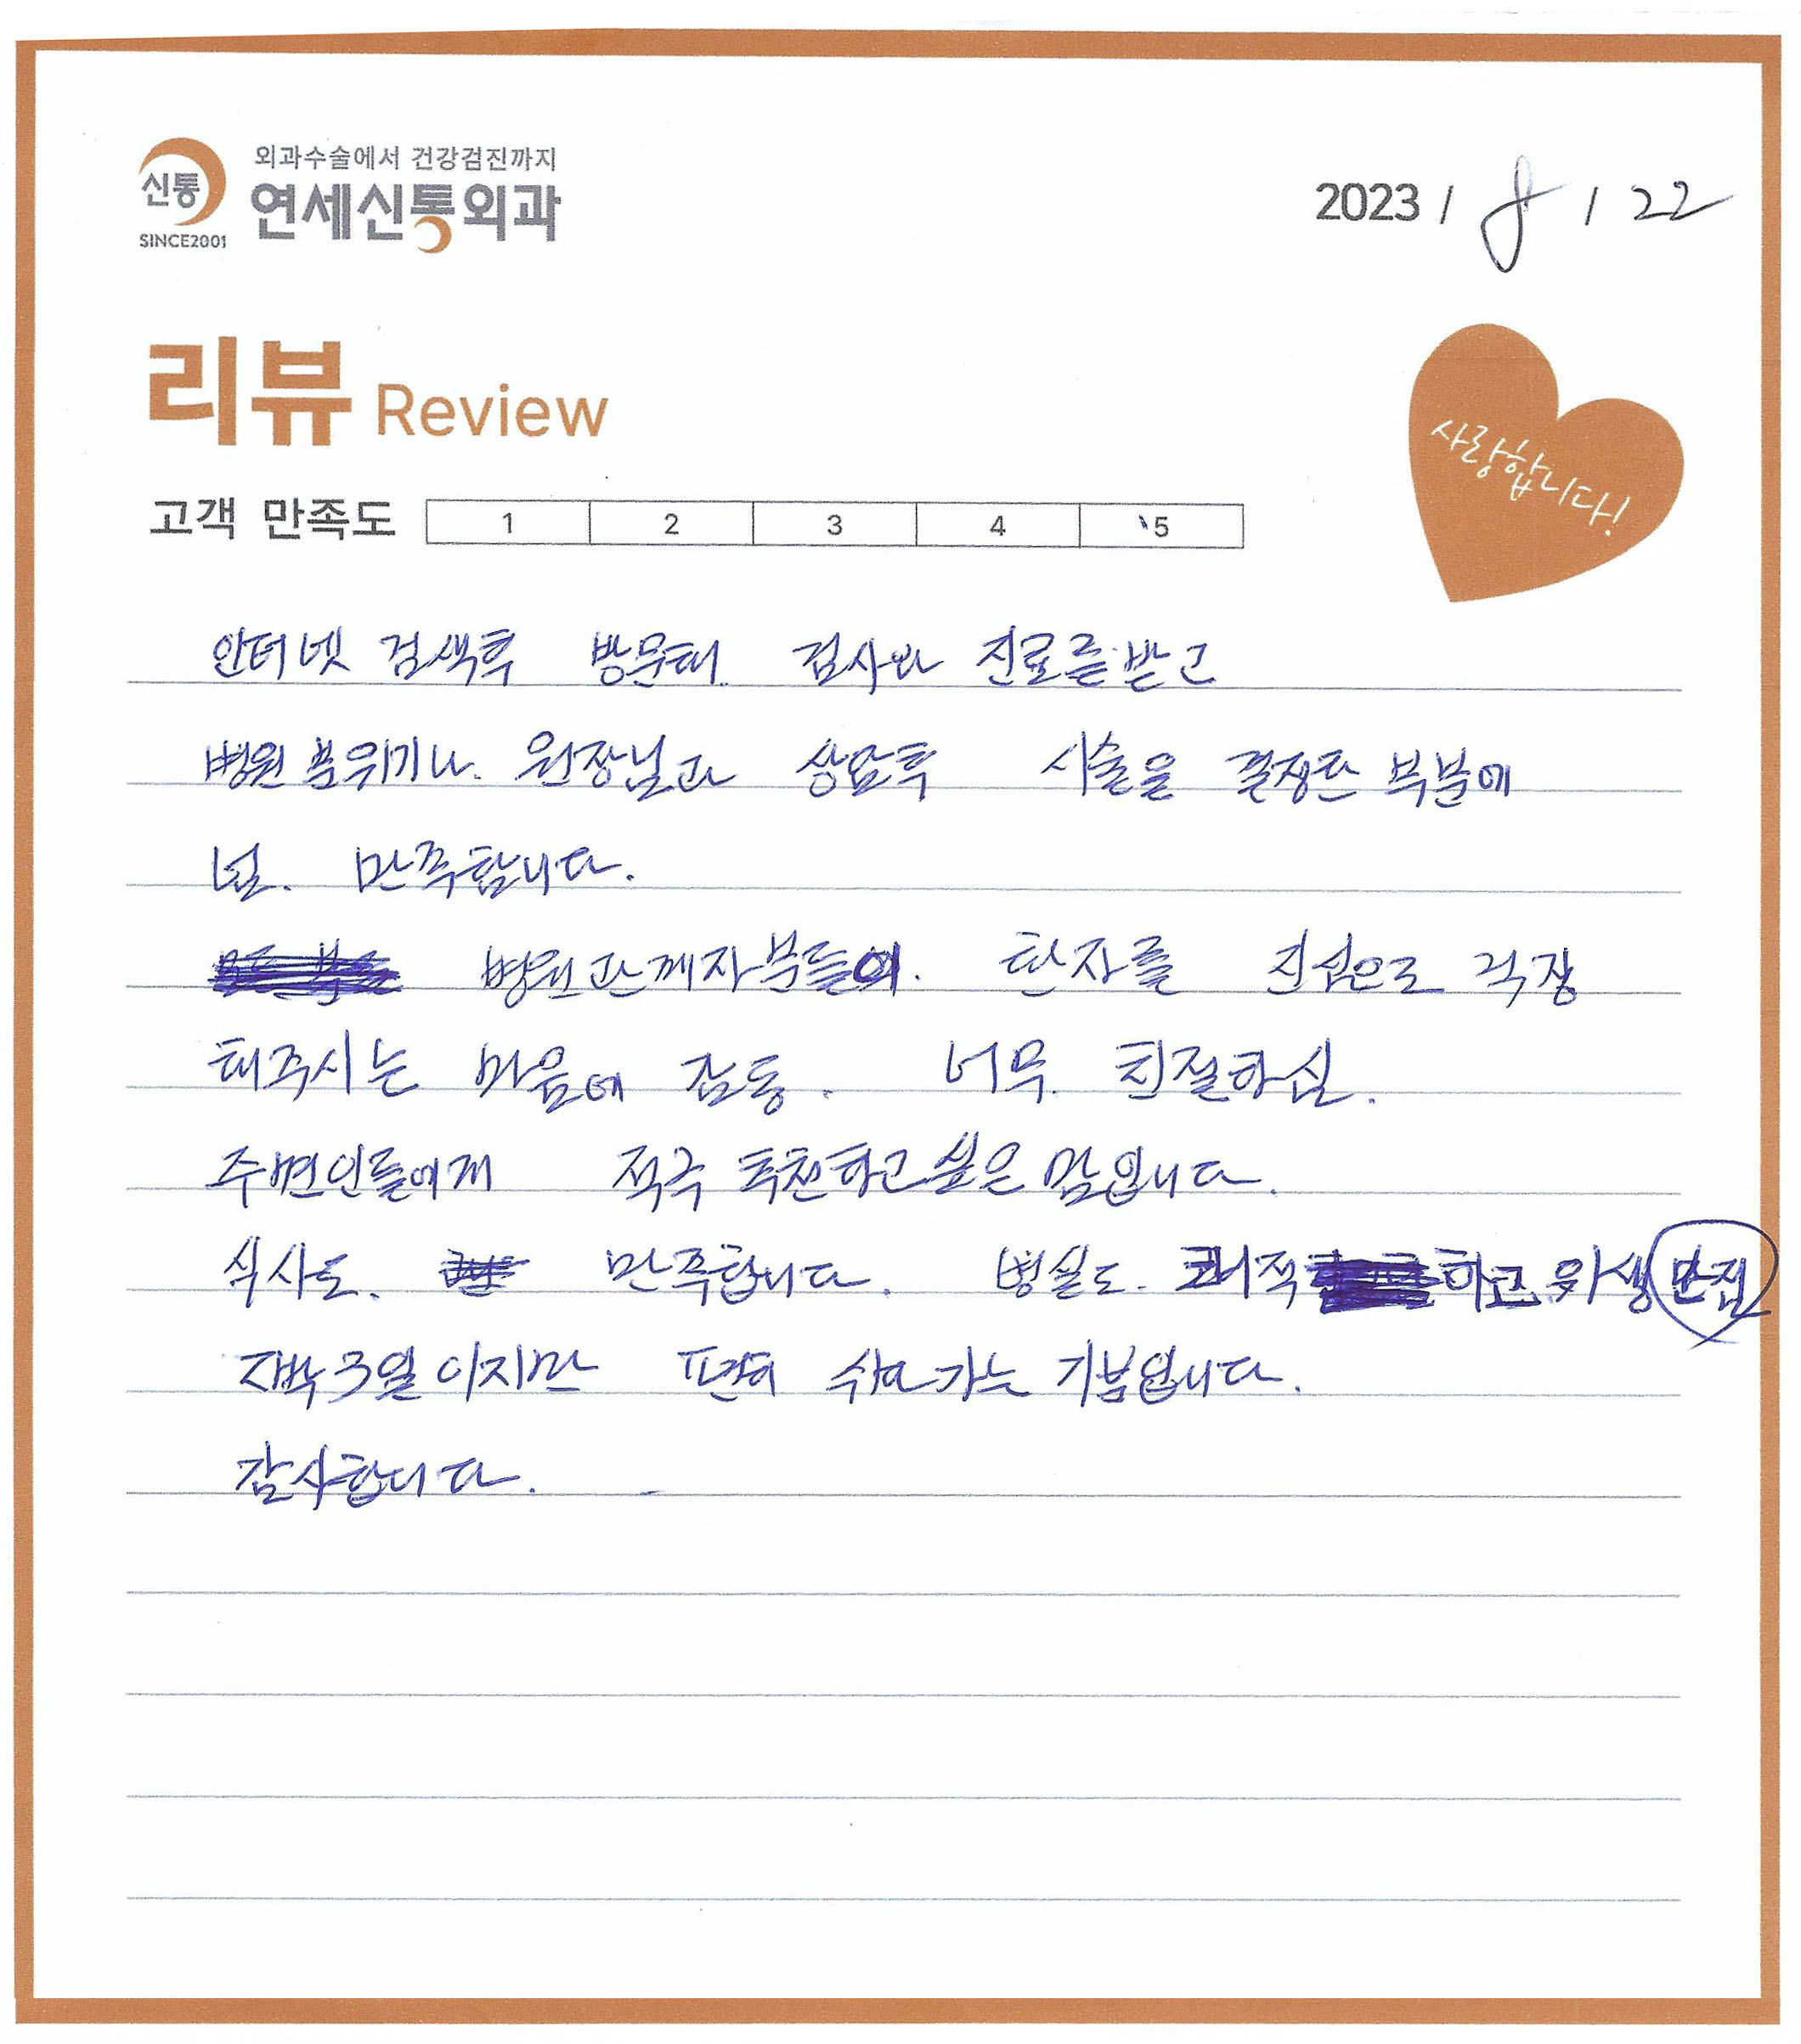 신통
SINCE2001
외과수술에서 건강검진까지
연세신통외과
2023 / 8 / 22
리뷰 Review
사랑합니다!
고객 만족도 1 2 3 4 5
인터넷 검색후 방문해. 검사와 진료를 받고
병원 분위기나. 원장님과 상담후 시술을 결정한 부분에
넘. 만족합니다.
병원관계자분들이. 환자를 진심으로 걱정
해주시는 마음에 감동. 너무. 친절하심.
주변인들에게 적극 추천하고싶은 맘입니다.
식사도. 만족합니다. 병실도. 쾌적하고 위생만점
2박3일이지만 편히 쉬다가는 기분입니다.
감사합니다.